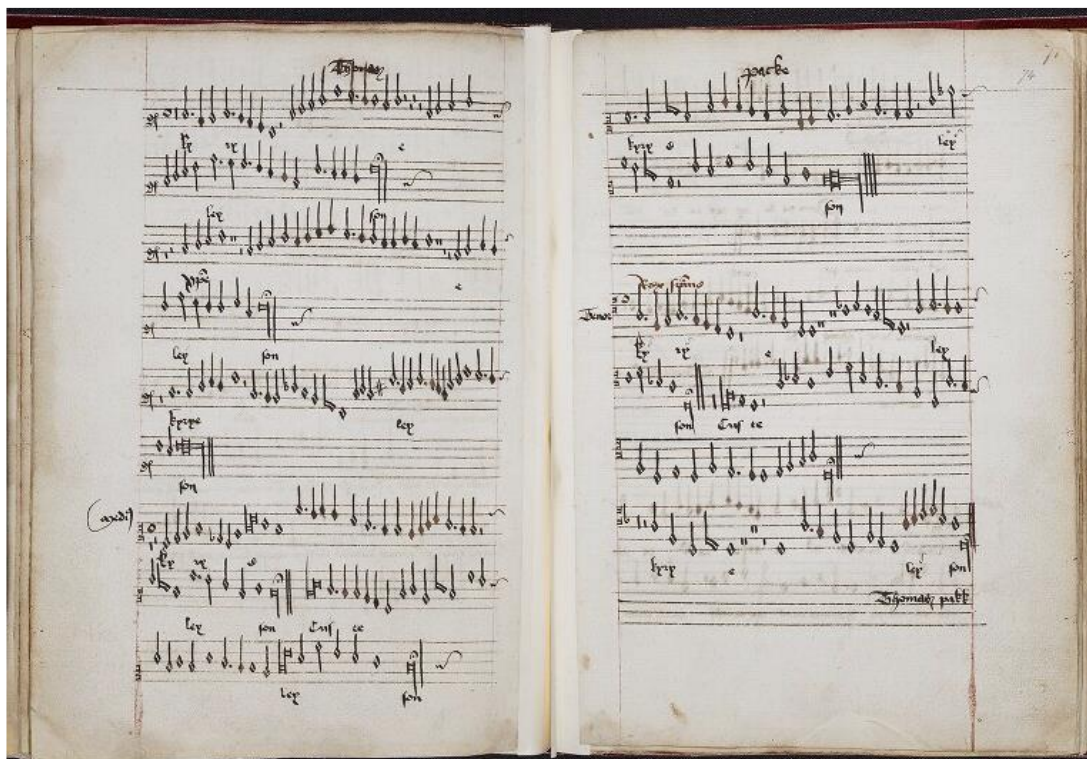 Thomas
ky ry e
ley son
xpe e
ley son
kyrye ley
son
medi9
ky ry e
ley son Cris te
ley son
packe
74
kyry e ley
son
Tenor
ky ry e ley
son Cris te
kyry e ley son
Thomas pakk